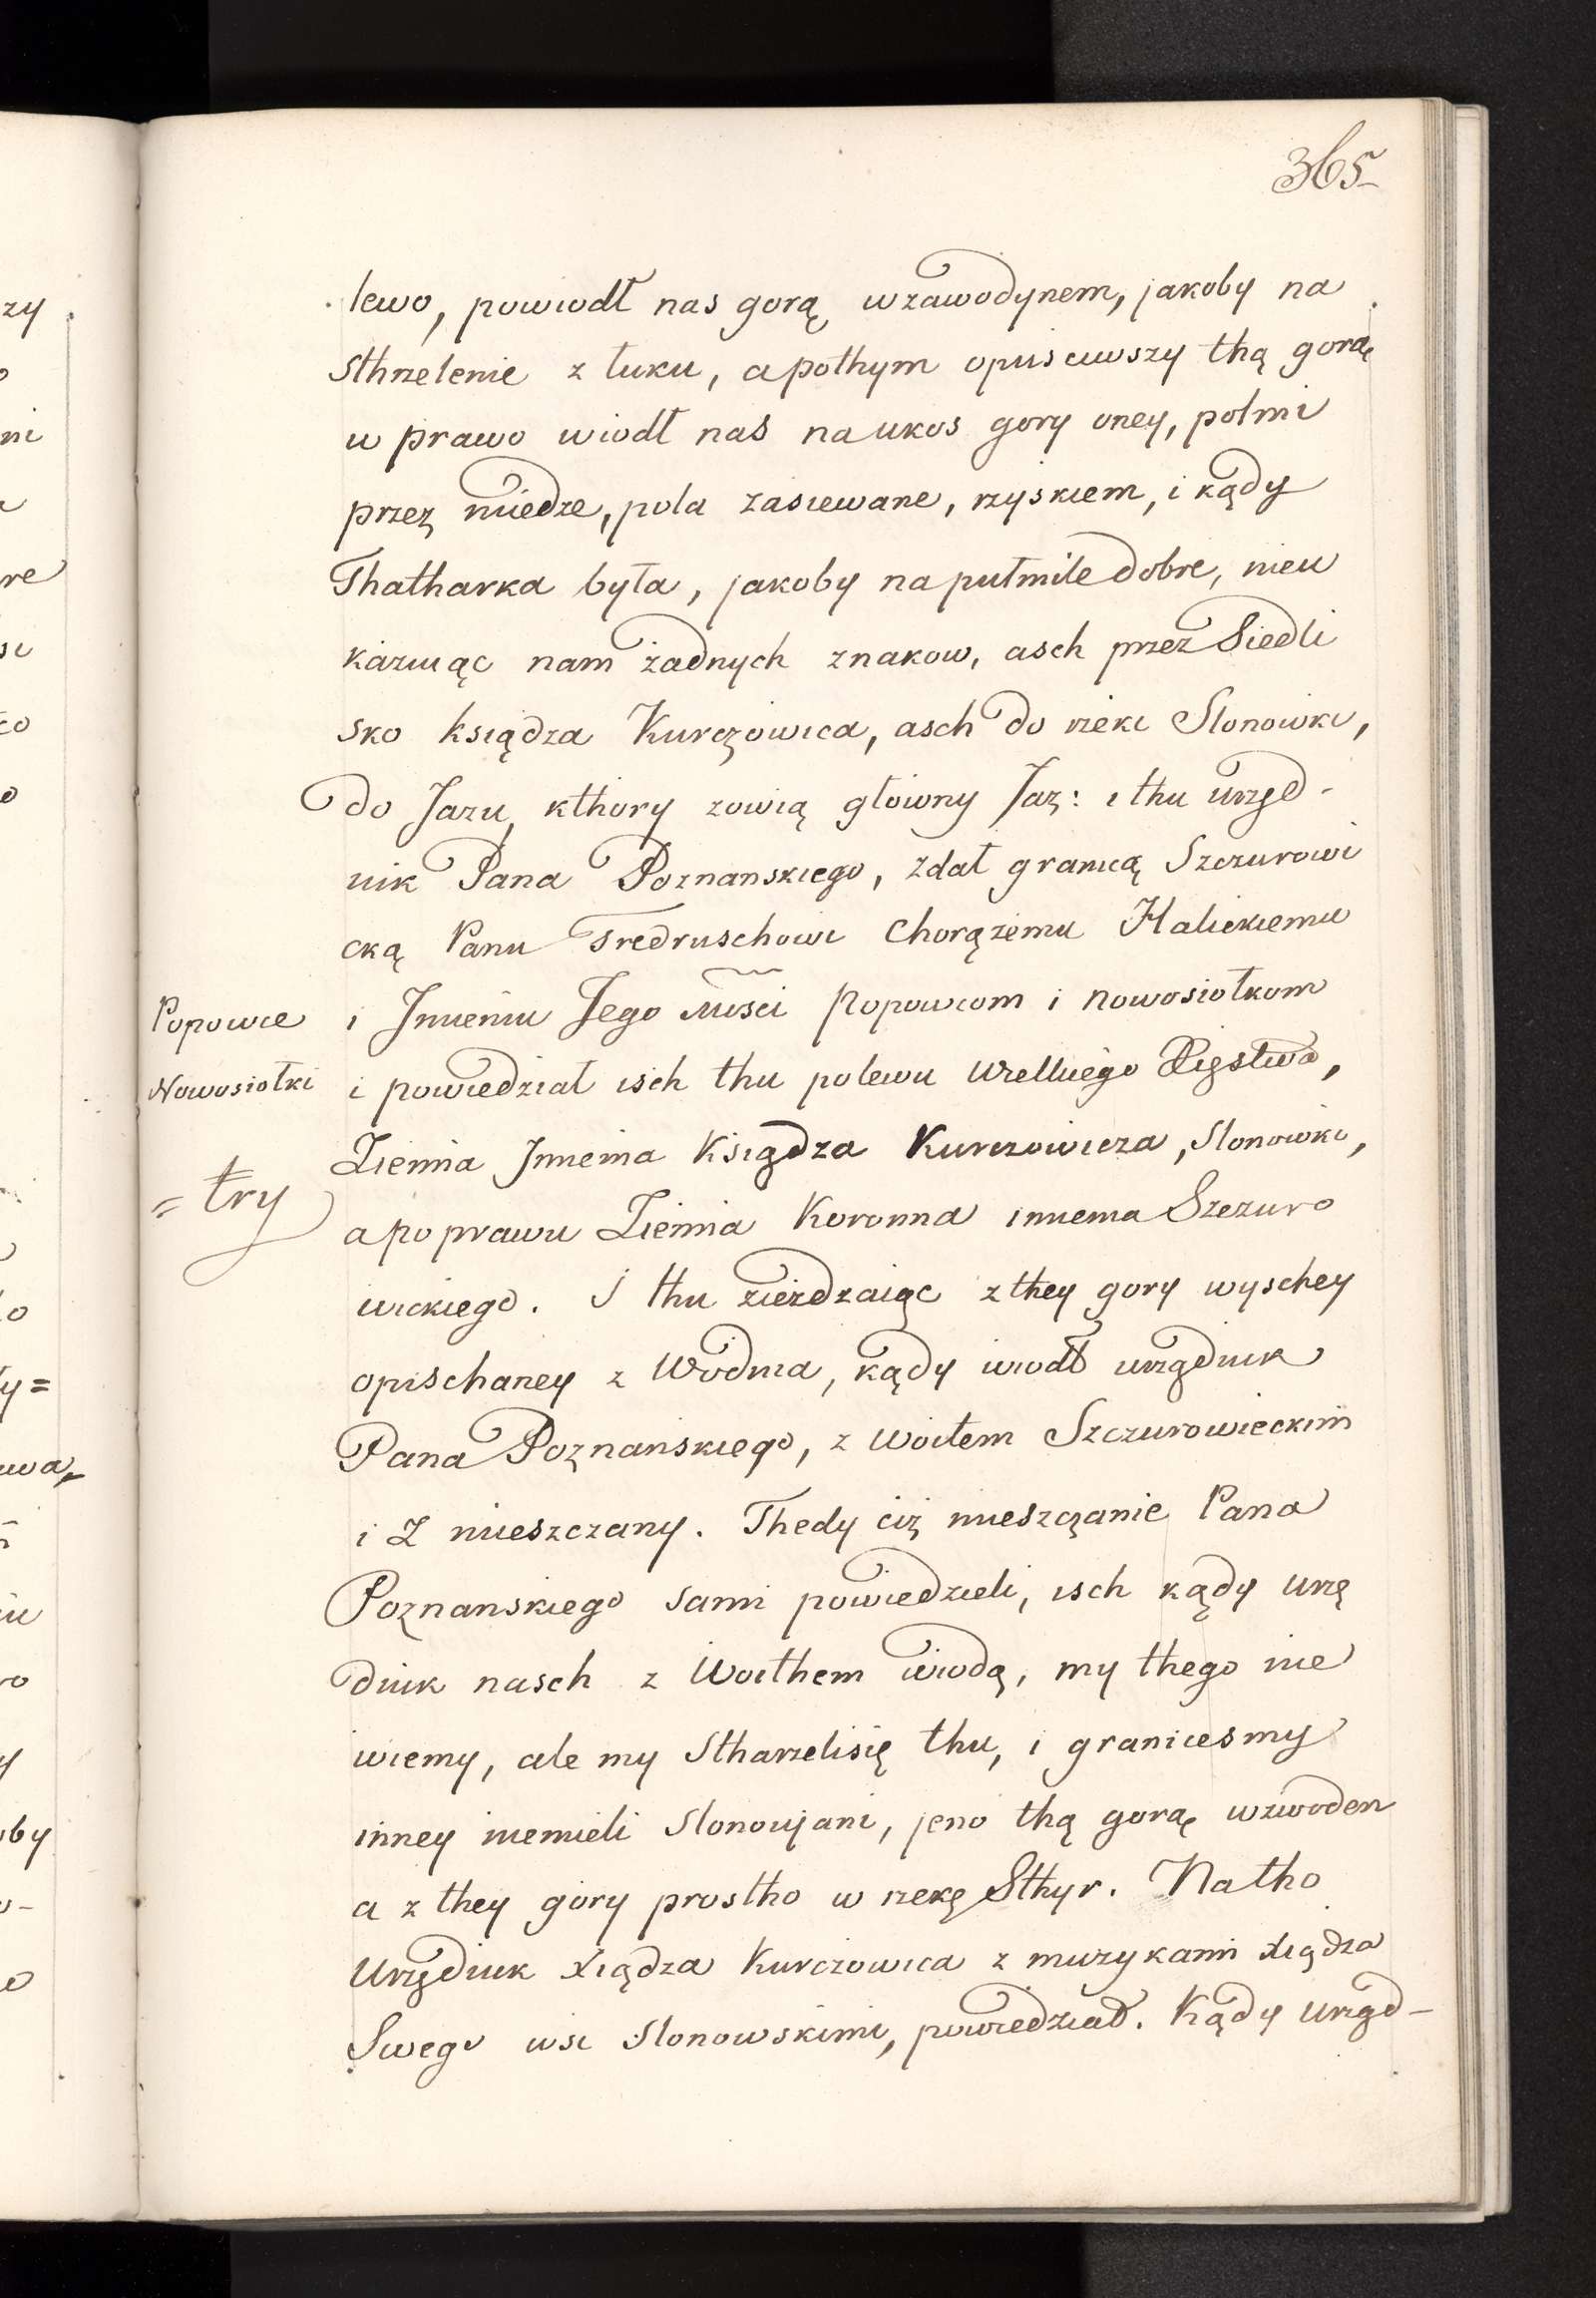 365
lewo, powiodł nas gorą wzawodynem, jakoby na
sthrzelenie z łuku, a pothym opusciwszy thą gorą
w prawo wiodł nas na ukos gory oney, polmi
przez miedze, pola zasiewane, rzyskiem, i kądy
Thatharka była, jakoby na pułmile dobre, nieu
kazuiąc nam żadnych znakow, asch przez Siedli
sko księdza Kurczowica, asch do rzeki Slonowki,
do Jazu, kthory zowią głowny Jaz: i thu urzęd-
nik Pana Poznanskiego, zdał granicą Szczurowi
cką Panu Fredruschowi Chorązemu Halickiemu
Popowce i Jmieniu Jego Mści Popowcom i Nowosiołkom
Nowosiołki i powiedział isch thu polewu Wielkiego Xięstwa,
Ziemia Jmienia Księdza Kurczowicza, Slonowki,
= try
a po prawu Ziemia Koronna imienia Szczuro
wickiego. I thu zieżdzaiąc z they gory wyschey
opischaney z Wodnia, kądy wiodł urzędnik
Pana Poznanskiego, z Woitem Szczurowieckim
i Z mieszczany. Thedy ciż mieszczanie Pana
Poznanskiego sami powiedzieli, isch kądy urzę
dnik nasch z Woithem wiodą, my thego nie
wiemy, ale my Stharzelisię thu, i graniciesmy
inney niemieli Slonowjani, jeno thą gorą wzwoden
a z they gory prostho w rzekę Sthyr. Natho
Urzędnik Xiędza Kurczowica z muzykami Xiędza
Swego wsi Slonowskimi, powiedział. Kądy urzęd-